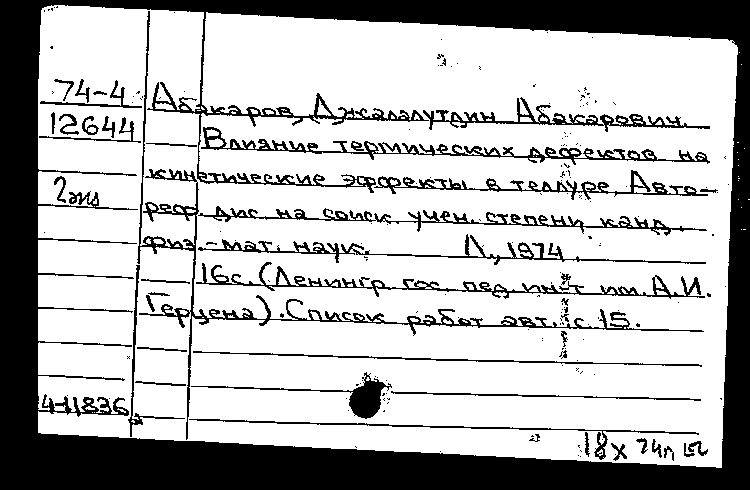 74-4 Абакаров, Джалалутдин Абакарович.
12644 Влияние термических дефектов на
кинетические эффекты в теллуре. Авто-
2 экз реф. дис. на соиск. учен. степени канд.
физ.-мат. наук. Л., 1974.
16с. (Ленингр. гос. пед. ин-т им. А.И.
Герцена). Список работ авт.: с. 15.
4-11836
18х 74л